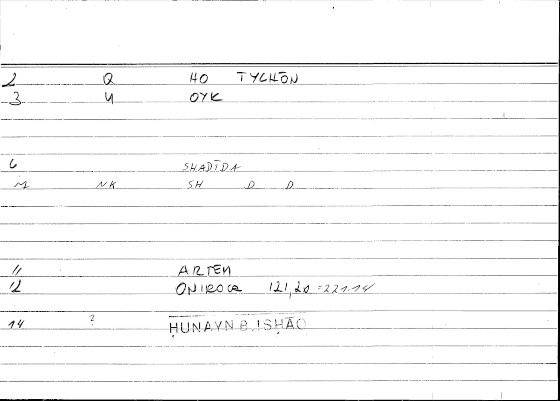 2 Q HO TYCHŌN
3 4 OYK
6 SHADĪDA
M NK SH D D
11 ARTEM
12 ONIROCR 121,20=221.14
14 ? ḤUNAYN B. ISḤĀQ